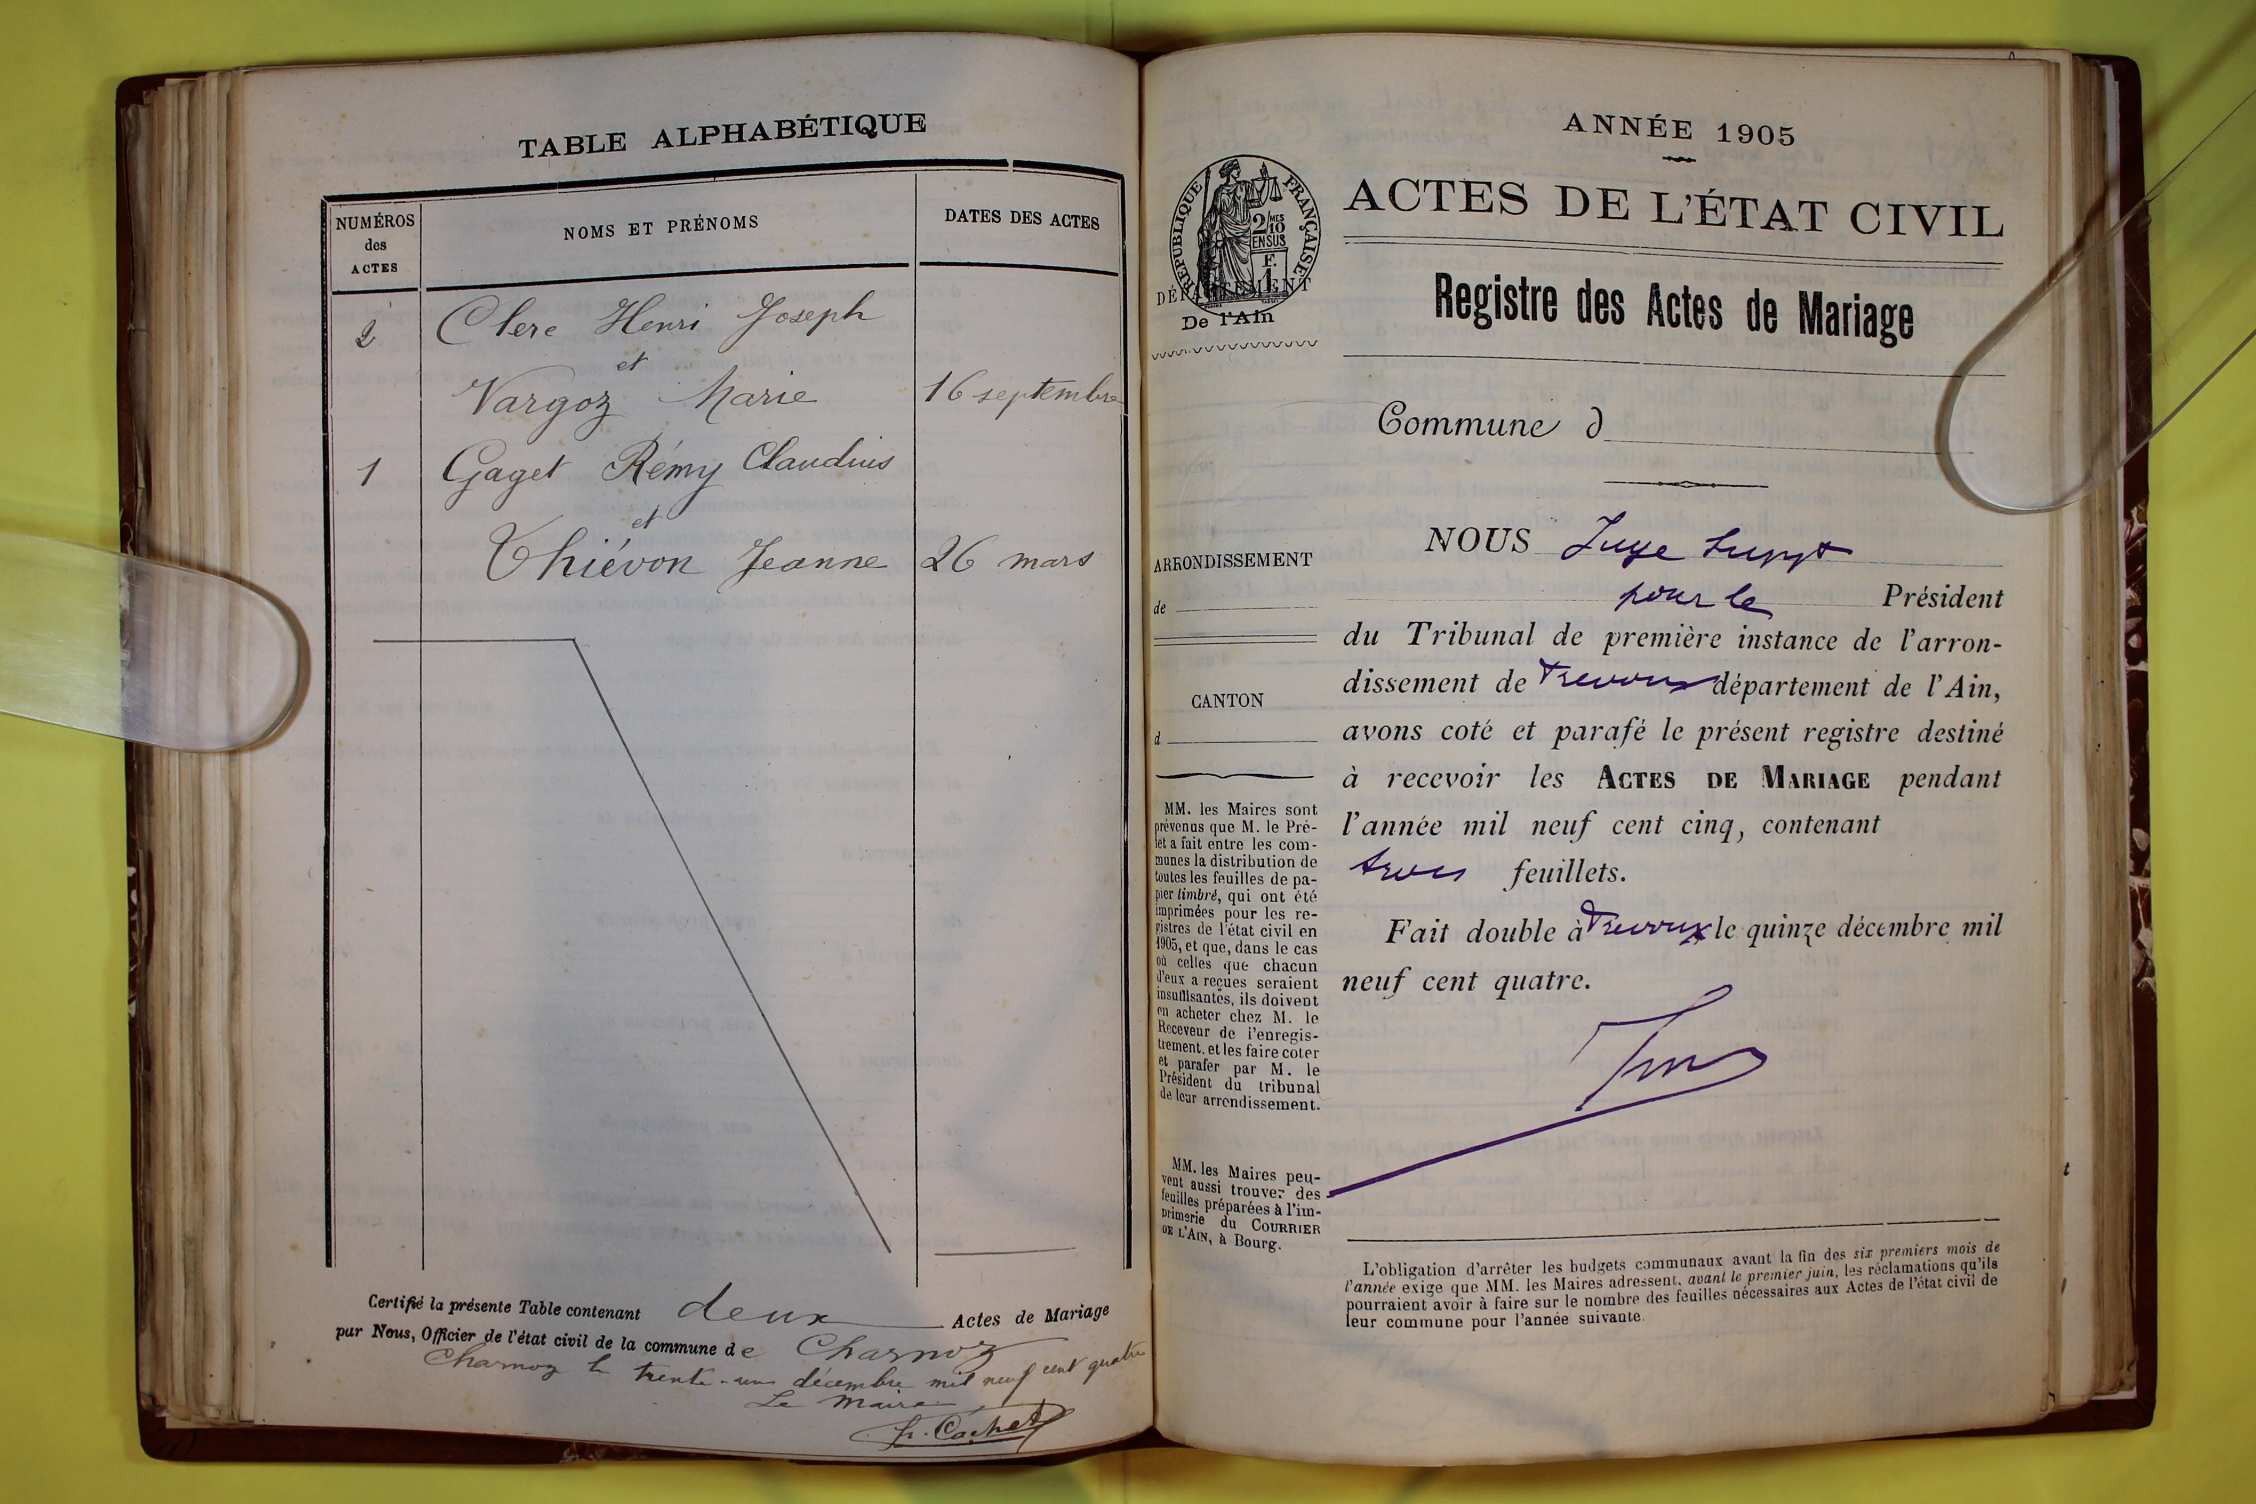 TABLE ALPHABÉTIQUE
NUMÉROS
des
ACTES
NOMS ET PRÉNOMS
DATES DES ACTES
2 Clerc Henri Joseph
et
Vargoz Marie 16 septembre
1 Gaget Rémy Claudius
et
Thiévon Jeanne 26 mars
Certifié la présente Table contenant deux Actes de Mariage
par Nous, Officier de l'état civil de la commune de Charnoz
Charnoz le trente-un décembre mil neuf cent quatre
Le Maire
Cachet
ANNÉE 1905
RÉPUBLIQUE FRANÇAISE
2/10 MES
EN SUS
F.
1
DÉPARTEMENT
De l'Ain
ACTES DE L'ÉTAT CIVIL
Registre des Actes de Mariage
Commune d
ARRONDISSEMENT
de
CANTON
d
MM. les Maires sont
prévenus que M. le Pré-
fet a fait entre les com-
munes la distribution de
toutes les feuilles de pa-
pier timbré, qui ont été
imprimées pour les re-
gistres de l'état civil en
1905, et que, dans le cas
où celles que chacun
d'eux a reçues seraient
insuffisantes, ils doivent
en acheter chez M. le
Receveur de l'enregis-
trement, et les faire coter
et parafer par M. le
Président du tribunal
de leur arrondissement.
MM. les Maires peu-
vent aussi trouver des
feuilles préparées à l'im-
primerie du COURRIER
DE L'AIN, à Bourg.
NOUS Juge suppt
pour le Président
du Tribunal de première instance de l'arron-
dissement de Trevoux département de l'Ain,
avons coté et parafé le présent registre destiné
à recevoir les ACTES DE MARIAGE pendant
l'année mil neuf cent cinq, contenant
trois feuillets.
Fait double à Trevoux le quinze décembre mil
neuf cent quatre.
L'obligation d'arrêter les budgets communaux avant la fin des six premiers mois de
l'année exige que MM. les Maires adressent, avant le premier juin, les réclamations qu'ils
pourraient avoir à faire sur le nombre des feuilles nécessaires aux Actes de l'état civil de
leur commune pour l'année suivante.